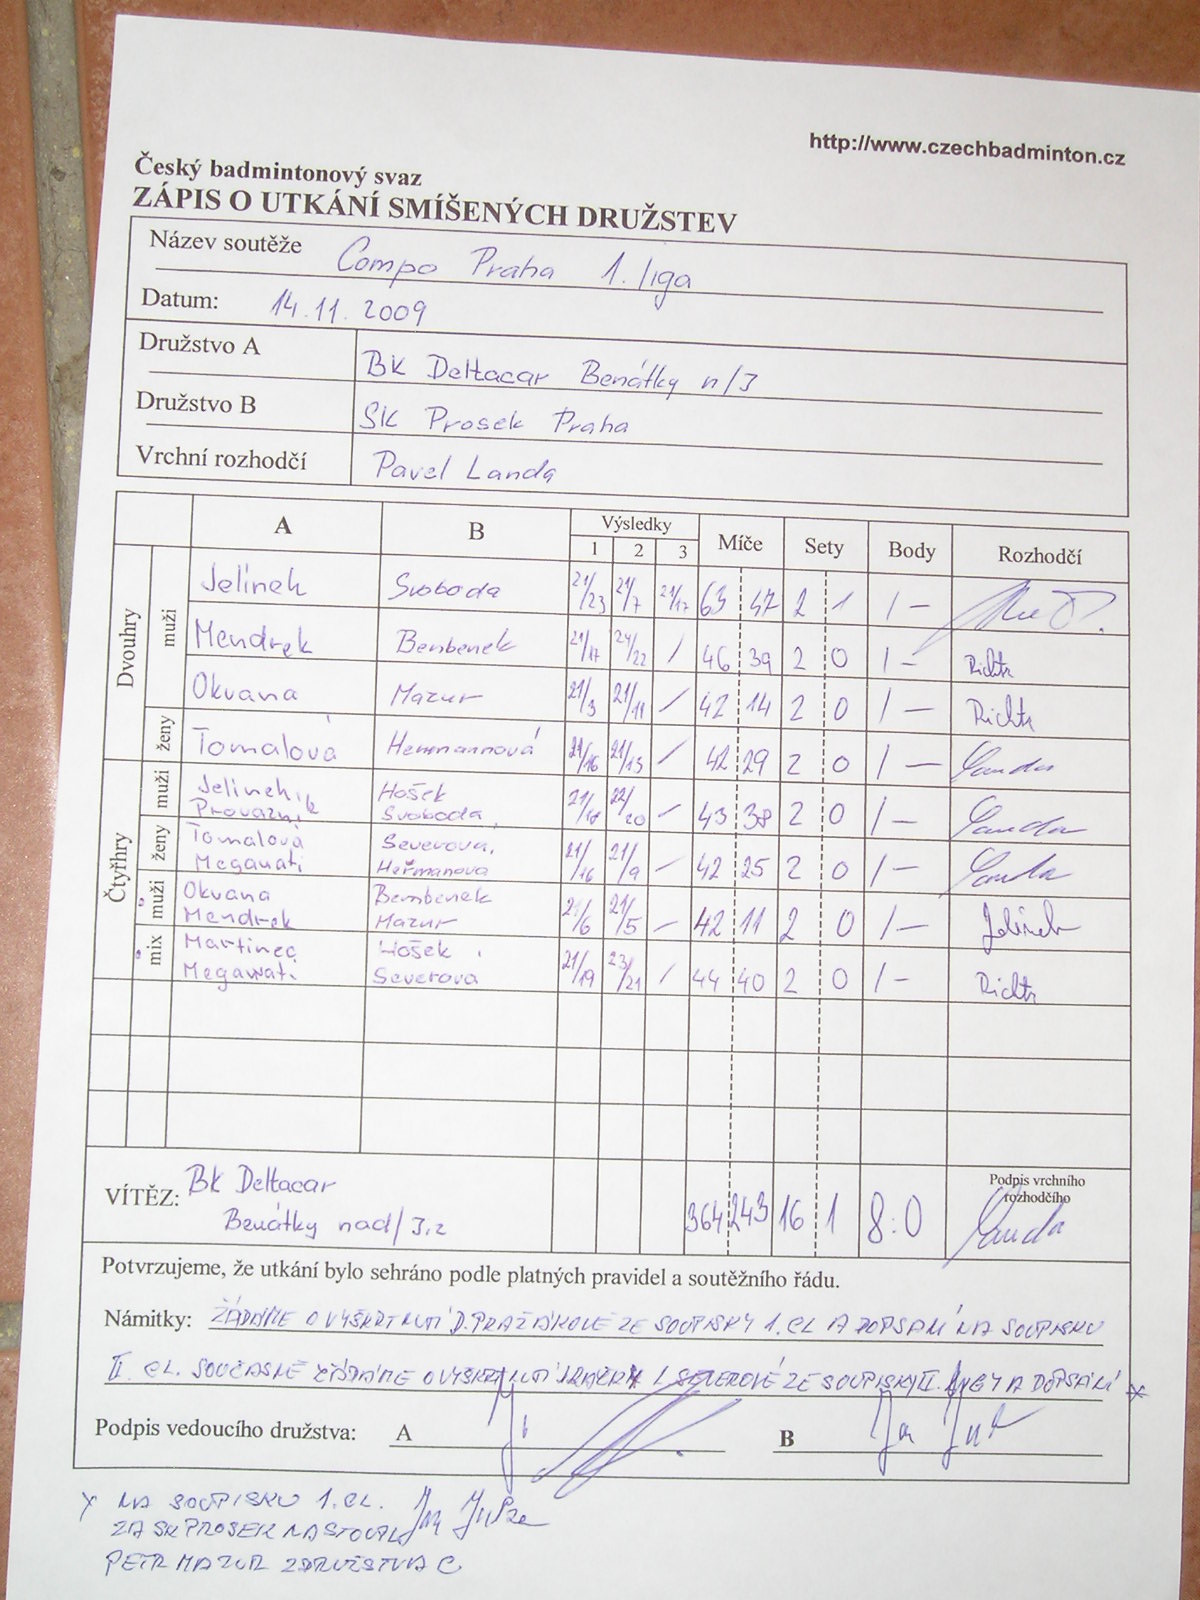 http://www.czechbadminton.cz
Český badmintonový svaz
ZÁPIS O UTKÁNÍ SMÍŠENÝCH DRUŽSTEV
Název soutěže Compo Praha 1. liga
Datum: 14.11.2009
Družstvo A BK Deltacar Benátky n/J
Družstvo B SK Prosek Praha
Vrchní rozhodčí Pavel Landa
A B Výsledky Míče Sety Body Rozhodčí
1 2 3
Dvouhry
muži
Jelínek Svoboda 21/23 21/7 21/17 63 47 2 1 1 –
Mendrek Bembenek 21/17 24/22 / 46 39 2 0 1 – Richtr
Okvana Mazur 21/3 21/11 / 42 14 2 0 1 – Richtr
ženy
Tomalová Hermannová 21/16 21/13 / 42 29 2 0 1 – Landa
Čtyřhry
muži
Jelínek Hošek
Provazník Svoboda 21/18 22/20 – 43 38 2 0 1 – Landa
ženy
Tomalová Severova
Megawati Heřmanova 21/16 21/9 – 42 25 2 0 1 – Landa
muži
Okvana Bembenek
Mendrek Mazur 21/6 21/5 – 42 11 2 0 1 – Jelínek
mix
Martinec Hošek
Megawati Severova 21/19 23/21 / 44 40 2 0 1 – Richtr
VÍTĚZ: BK Deltacar
Benátky nad/Jiz 364 243 16 1 8:0
Podpis vrchního
rozhodčího
Landa
Potvrzujeme, že utkání bylo sehráno podle platných pravidel a soutěžního řádu.
Námitky: ŽÁDÁME O VYŠKRTNUTÍ D. PRAŽÁKOVÉ ZE SOUPISKY 1. CL A DOPSÁNÍ NA SOUPISKU
II. CL. SOUČASNĚ ŽÁDÁME O VYŠKRTNUTÍ HRÁČKY I. SEVEROVÉ ZE SOUPISKY II. LIGY A DOPSÁNÍ x
Podpis vedoucího družstva: A B
x NA SOUPISKU 1. CL.
ZA SK PROSEK NASTOUPIL
PETR MAZUR Z DRUŽSTVA C